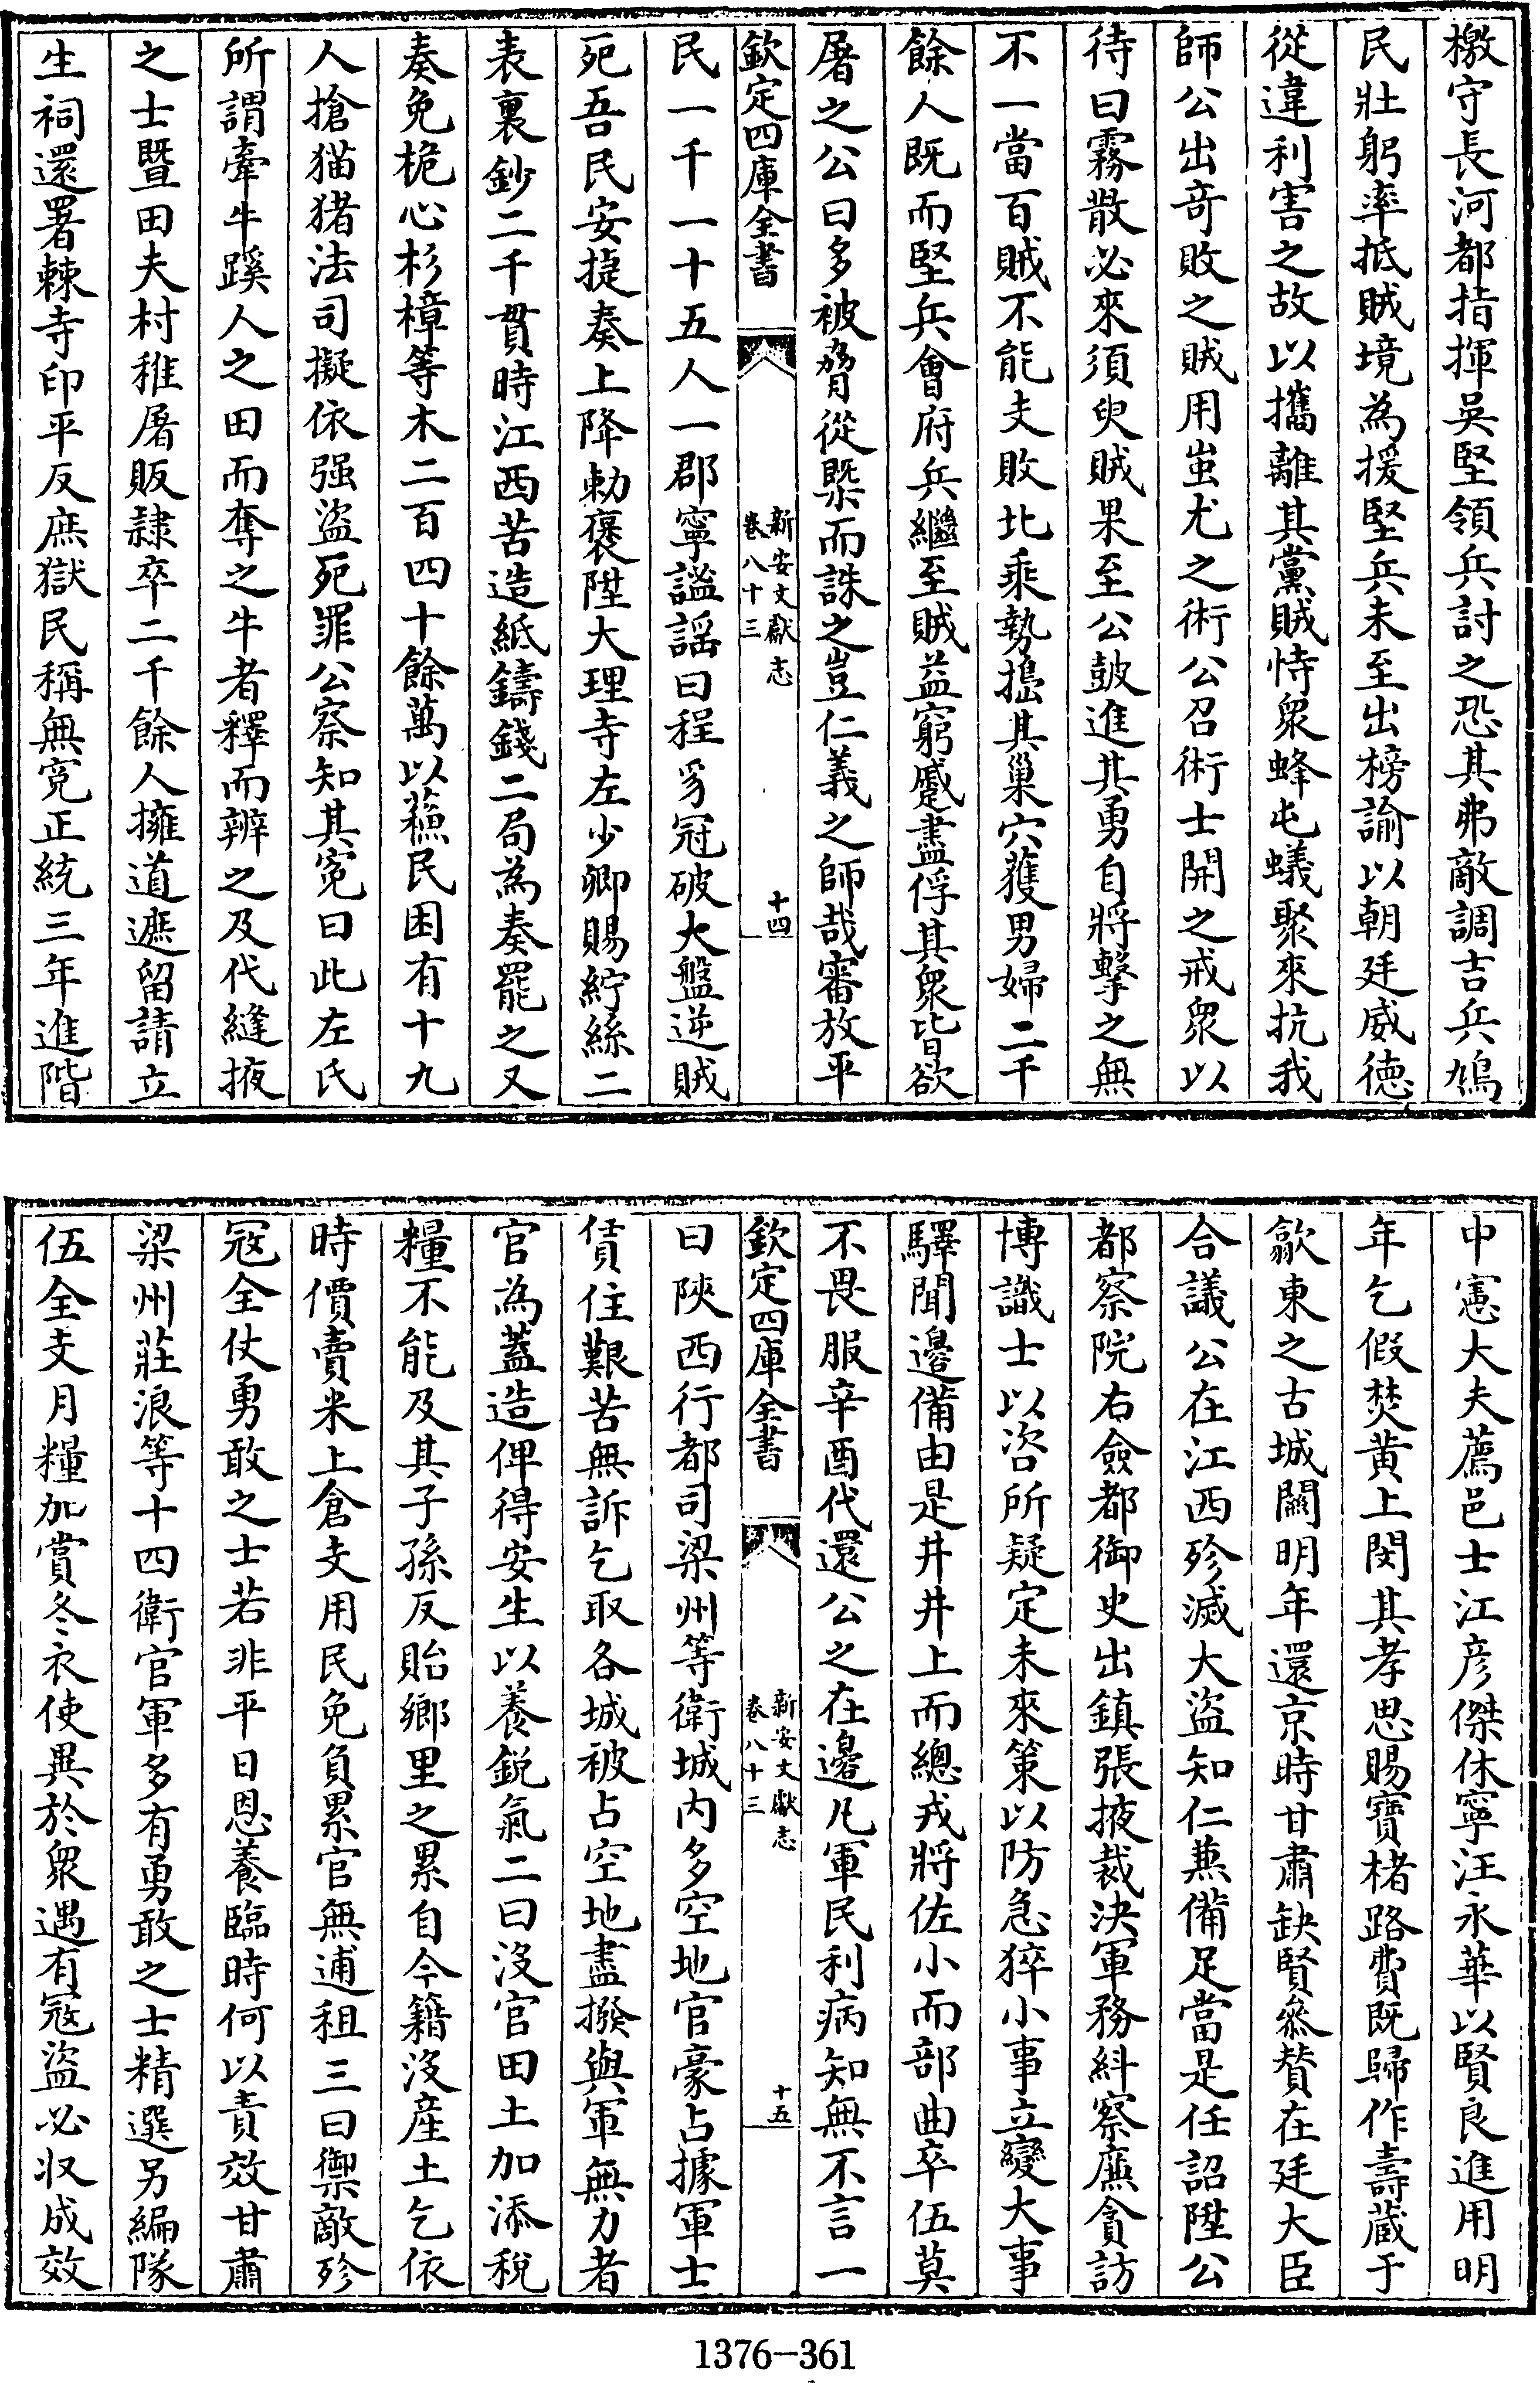 檄守長河都指揮吳堅領兵討之恐其弗敵調吉兵鳩
民壯躬率抵賊境為援堅兵未至出榜諭以朝廷威德
從違利害之故以攜離其黨賊恃衆蜂屯蟻聚來抗我
師公出奇敗之賊用蚩尤之術公召術士開之戒衆以
待曰霧散必來須臾賊果至公鼓進其勇自將擊之無
不一當百賊不能支敗北乘勢搗其巢穴獲男婦二千
餘人既而堅兵㑹府兵繼至賊益窮蹙盡俘其衆皆欲
屠之公曰多被脅從槩而誅之豈仁義之師哉審放平
欽定四庫全書
新安文獻志
卷八十三
十四
民一千一十五人一郡寧謐謡曰程豸冠破大盤逆賊
死吾民安捷奏上降勅褒陞大理寺左少卿賜紵絲二
表裏鈔二千貫時江西苦造紙鑄錢二局為奏罷之又
奏免桅心杉樟等木二百四十餘萬以蘓民困有十九
人搶猫猪法司擬依强盜死罪公察知其寃曰此左氏
所謂牽牛蹊人之田而奪之牛者釋而辨之及代縫掖
之士暨田夫村稚屠販隷卒二千餘人擁道遮留請立
生祠還署棘寺印平反庶獄民稱無寃正統三年進階
中憲大夫薦邑士江彦傑休寧汪永華以賢良進用明
年乞假焚黄上閔其孝思賜寳楮路費既歸作壽藏于
歙東之古城關明年還京時甘肅缺賢叅賛在廷大臣
合議公在江西殄滅大盜知仁兼備足當是任詔陞公
都察院右僉都御史出鎮張掖裁決軍務糾察㢘貪訪
博識士以咨所疑定未來策以防急猝小事立變大事
驛聞邊備由是井井上而總戎將佐小而部曲卒伍莫
不畏服辛酉代還公之在邊凡軍民利病知無不言一
欽定四庫全書
新安文獻志
卷八十三
十五
曰陜西行都司梁州等衛城内多空地官豪占據軍士
賃住艱苦無訴乞取各城被占空地盡撥與軍無力者
官為蓋造俾得安生以養鋭氣二曰沒官田土加添稅
糧不能及其子孫反貽鄉里之累自今籍沒産土乞依
時價賣米上倉支用民免負累官無逋租三曰禦敵殄
寇全仗勇敢之士若非平日恩養臨時何以責效甘肅
梁州莊浪等十四衛官軍多有勇敢之士精選另編隊
伍全支月糧加賞冬衣使異於衆遇有寇盜必収成效
1376-361